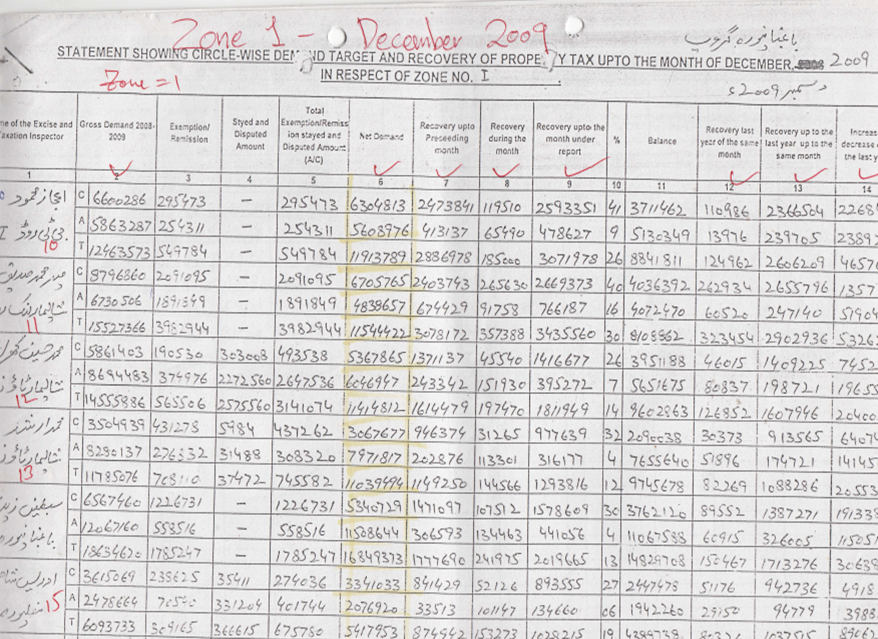 Zone 1 - December 2009
باغبانپورہ گروپ
STATEMENT SHOWING CIRCLE-WISE DEMAND TARGET AND RECOVERY OF PROPERTY TAX UPTO THE MONTH OF DECEMBER, 2009
Zone = 1
IN RESPECT OF ZONE NO. I
دسمبر 2009ء
me of the Excise and Taxation Inspector Gross Demand 2008-2009 Exemption/Remission Styed and Disputed Amount Total Exemption/Remission stayed and Disputed Amount (A/C) Net Demand Recovery upto Preceeding month Recovery during the month Recovery upto the month under report % Balance Recovery last year of the same month Recovery up to the last year up to the same month Increas decrease the last y
1 2 3 4 5 6 7 8 9 10 11 12 13 14
C 6600286 295473 – 295473 6304813 2473841 119510 2593351 41 3711462 110986 2366504 2268
10 A 5863287 254311 – 254311 5608976 413137 65490 478627 9 5130349 13976 239705 2389
T 12463573 549784 – 549784 11913789 2886978 185000 3071978 26 8841811 124962 2606209 4657
C 8796860 2091095 – 2091095 6705765 2403743 265630 2669373 40 4036392 262934 2655796 1357
11 A 6730506 1891849 – 1891849 4838657 674429 91758 766187 16 4072470 60520 247140 51904
T 15527366 3982944 – 3982944 11544422 3078172 357388 3435560 30 8108862 323454 2902936 5326
C 5861403 190530 303008 493538 5367865 1371137 45540 1416677 26 3951188 46015 1409225 7452
12 A 8694483 374976 2272560 2647536 6046947 243342 151930 395272 7 5651675 80837 198721 19655
T 14555886 565506 2575560 3141074 11414812 1614479 197470 1811949 14 9602863 126852 1607946 20400
C 3504939 431278 5984 437262 3067677 946374 31265 977639 32 2090038 30373 913565 6407
13 A 8280137 276832 31488 308320 7971817 202876 113301 316177 4 7655640 51896 174721 14145
T 11785076 708110 37472 745582 11039494 1149250 144566 1293816 12 9745678 82269 1088286 20553
C 6567460 1226731 – 1226731 5340729 1471097 107512 1578609 30 3762120 89552 1387271 191338
A 12067160 558516 – 558516 11508644 306593 134463 441056 4 11067588 60915 326005 11505
T 18634620 1785247 – 1785247 16849373 1777690 241975 2019665 13 14829708 150467 1713276 30638
C 3615069 238625 35411 274036 3341033 841429 52126 893555 27 2447478 51176 942736 4918
15 A 2478664 70540 331204 401744 2076920 33513 101147 134660 06 1942260 29150 94779 3988
T 6093733 309165 366615 675780 5417953 874942 153273 1028215 19 4389738